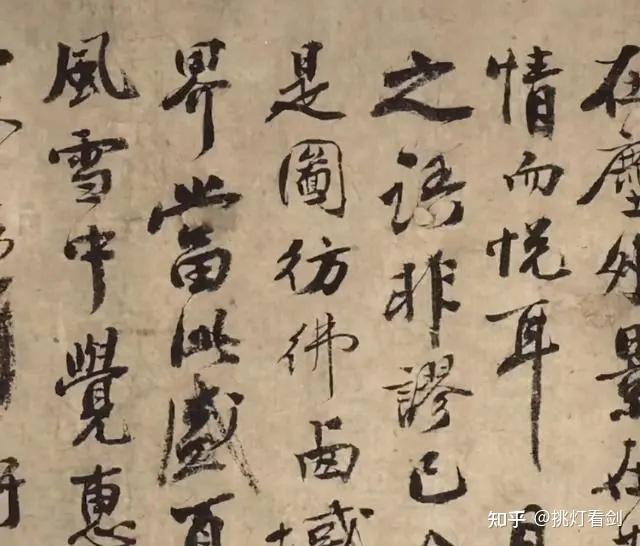 在塵外景在
情而悅耳
之語非謬已
是圖彷彿西域
界當此盛夏
風雪中覺惠
知乎 @挑灯看剑